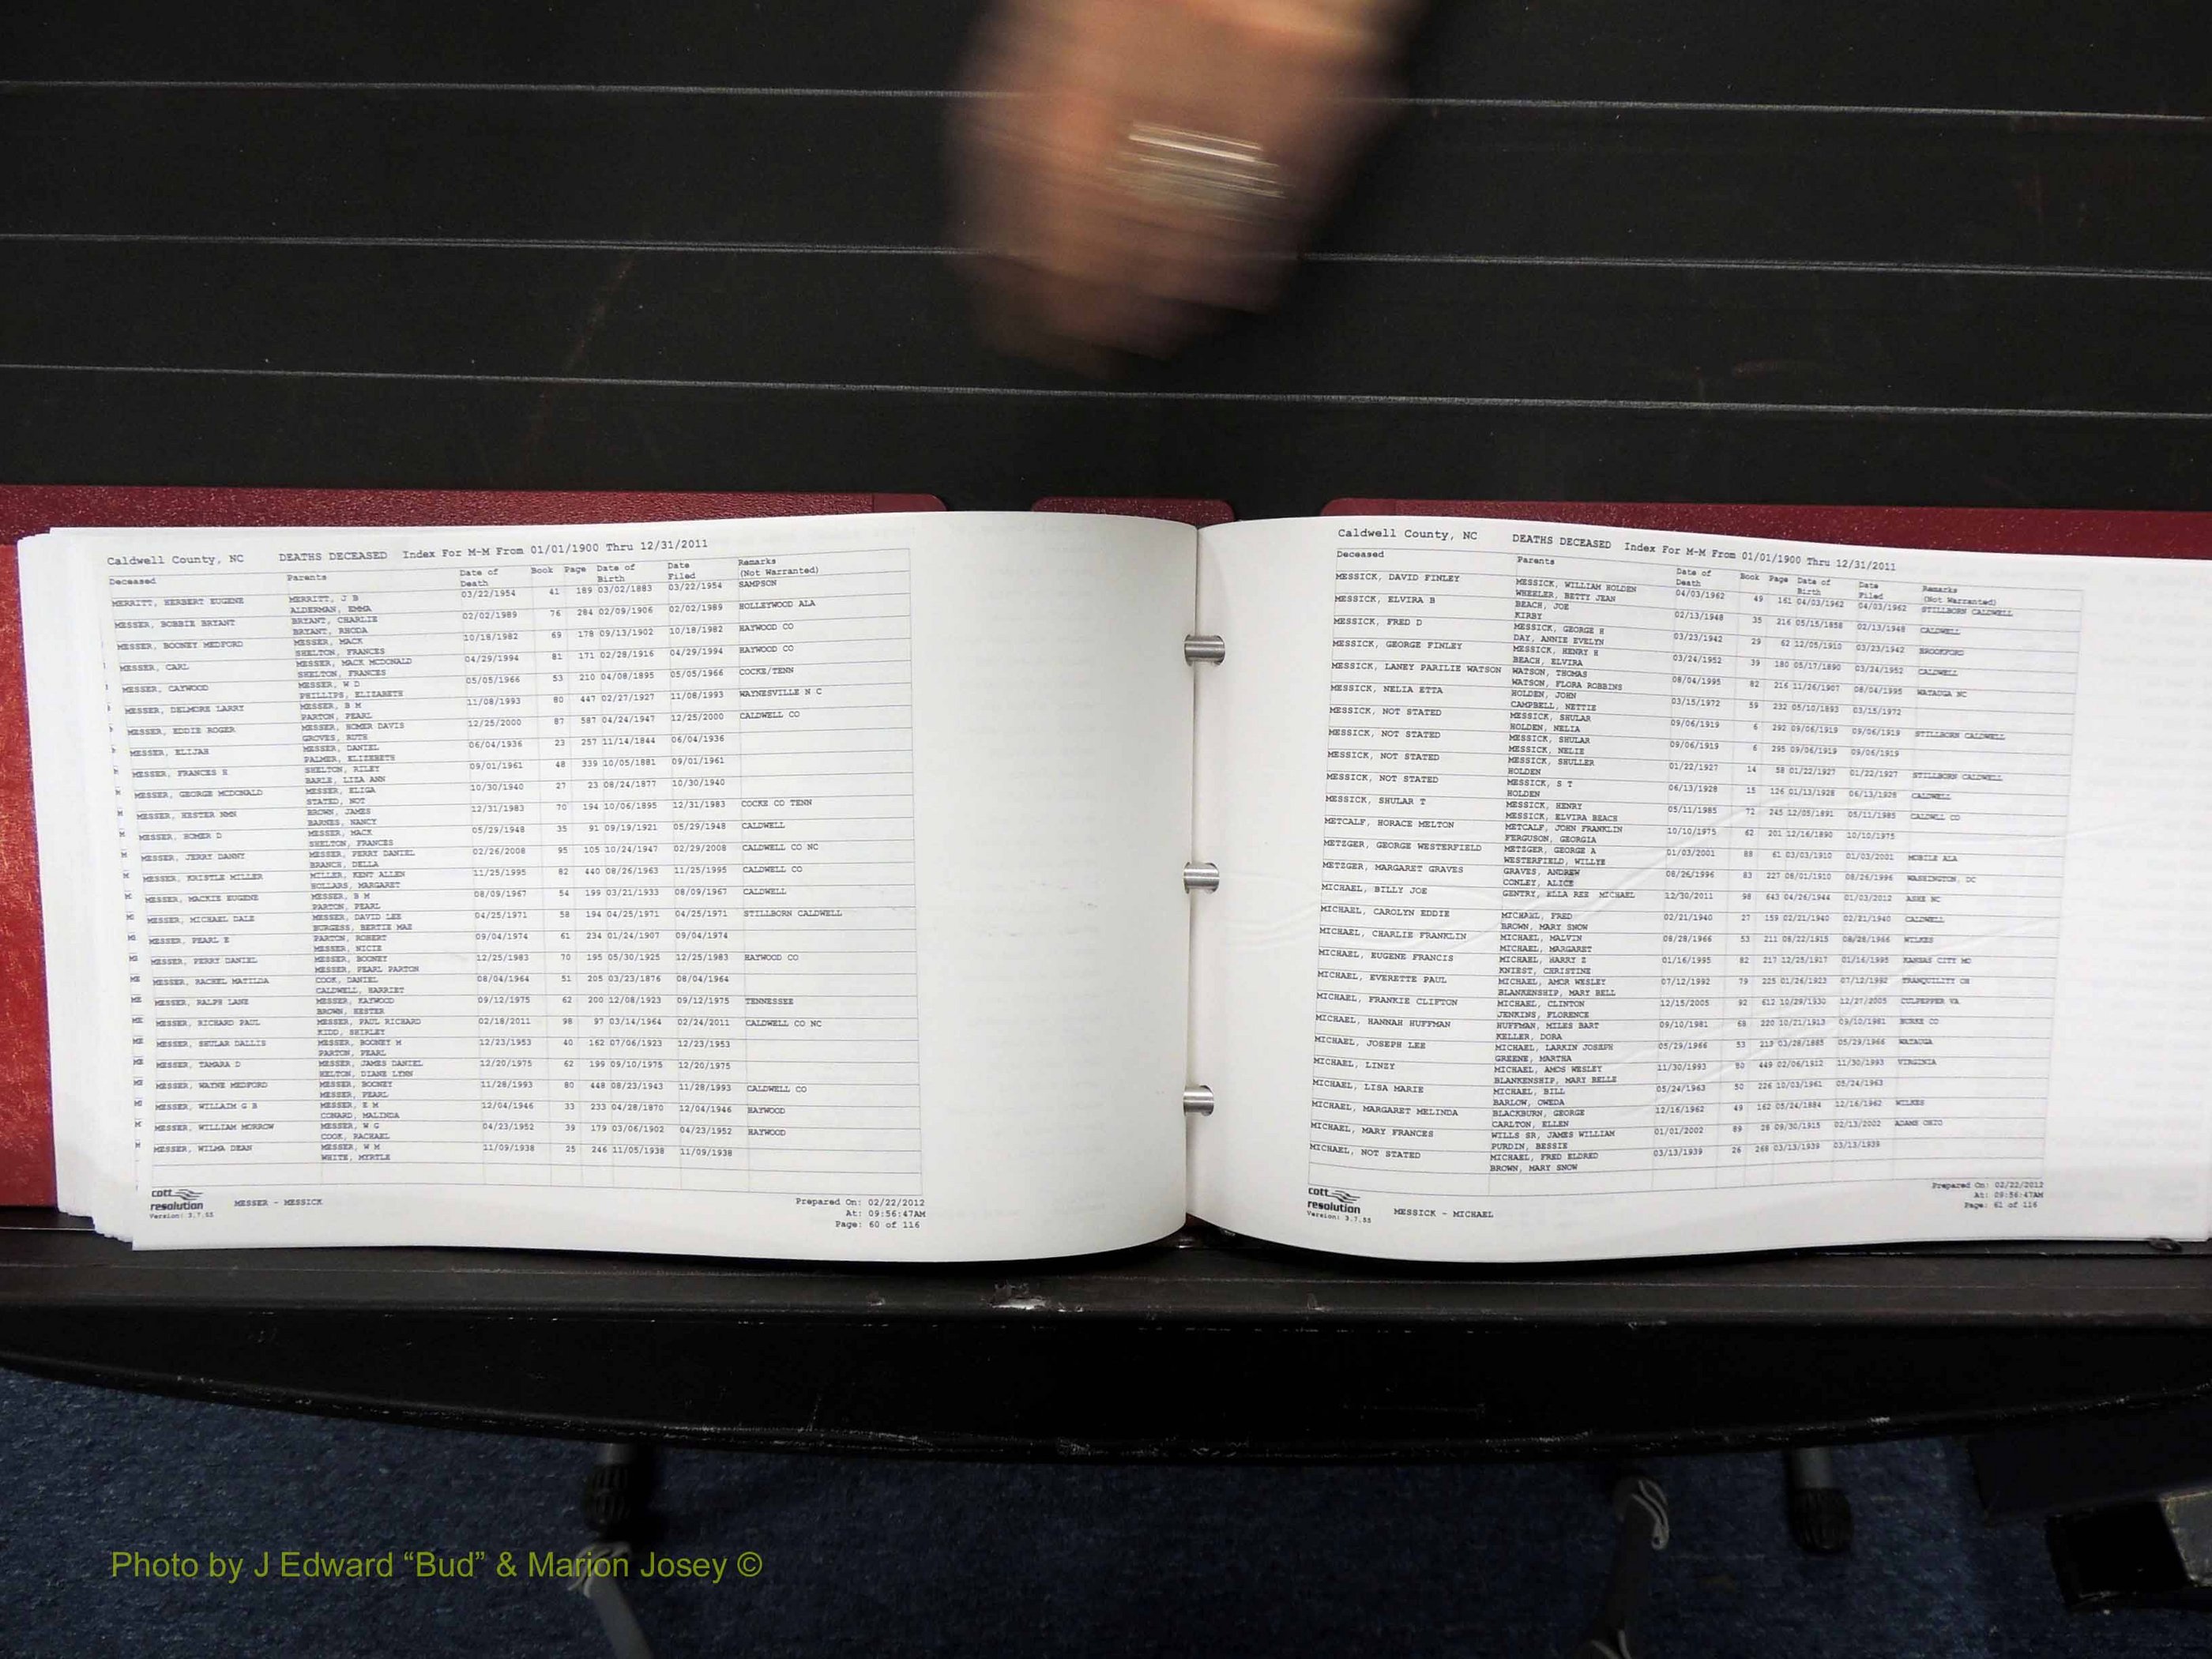 Caldwell County, NC DEATHS DECEASED Index For M-M From 01/01/1900 Thru 12/31/2011
Deceased Parents Date of Death Book Page Date of Birth Date Filed Remarks (Not Warranted)
MERRITT, HERBERT EUGENE MERRITT, J B 03/22/1954 41 189 03/02/1883 03/22/1954 SAMPSON
ALDERMAN, EMMA
MESSER, BOBBIE BRYANT BRYANT, CHARLIE 02/02/1989 76 284 02/09/1906 02/02/1989 HOLLEYWOOD ALA
BRYANT, RHODA
MESSER, BOONEY MEDFORD MESSER, MACK 10/18/1982 69 178 09/13/1902 10/18/1982 HAYWOOD CO
SHELTON, FRANCES
MESSER, CARL MESSER, MACK MCDONALD 04/29/1994 81 171 02/28/1916 04/29/1994 HAYWOOD CO
SHELTON, FRANCES
MESSER, CAYWOOD MESSER, W D 05/05/1966 53 210 04/08/1895 05/05/1966 COCKE/TENN
PHILLIPS, ELIZABETH
MESSER, DELMORE LARRY MESSER, B M 11/08/1993 80 447 02/27/1927 11/08/1993 WAYNESVILLE N C
PARTON, PEARL
MESSER, EDDIE ROGER MESSER, HOMER DAVIS 12/25/2000 87 587 04/24/1947 12/25/2000 CALDWELL CO
GROVES, RUTH
MESSER, ELIJAH MESSER, DANIEL 06/04/1936 23 257 11/14/1844 06/04/1936
PALMER, ELIZEBETH
MESSER, FRANCES H SHELTON, RILEY 09/01/1961 48 339 10/05/1881 09/01/1961
EARLE, LIZA ANN
MESSER, GEORGE MCDONALD MESSER, ELIGA 10/30/1940 27 23 08/24/1877 10/30/1940
STATED, NOT
MESSER, HESTER NMN BROWN, JAMES 12/31/1983 70 194 10/06/1895 12/31/1983 COCKE CO TENN
BARNES, NANCY
MESSER, HOMER D MESSER, MACK 05/29/1948 35 91 09/19/1921 05/29/1948 CALDWELL
SHELTON, FRANCES
MESSER, JERRY DANNY MESSER, PERRY DANIEL 02/26/2008 95 105 10/24/1947 02/29/2008 CALDWELL CO NC
BRANCH, DELLA
MESSER, KRISTLE MILLER MILLER, KENT ALLEN 11/25/1995 82 440 08/26/1963 11/25/1995 CALDWELL CO
HOLLARS, MARGARET
MESSER, MACKIE EUGENE MESSER, B M 08/09/1967 54 199 03/21/1933 08/09/1967 CALDWELL
PARTON, PEARL
MESSER, MICHAEL DALE MESSER, DAVID LEE 04/25/1971 58 194 04/25/1971 04/25/1971 STILLBORN CALDWELL
BURGESS, BERTIE MAE
MESSER, PEARL E PARTON, ROBERT 09/04/1974 61 234 01/24/1907 09/04/1974
MESSER, NICIE
MESSER, PERRY DANIEL MESSER, BOONEY 12/25/1983 70 195 05/30/1925 12/25/1983 HAYWOOD CO
MESSER, PEARL PARTON
MESSER, RACHEL MATILDA COOK, DANIEL 08/04/1964 51 205 03/23/1876 08/04/1964
CALDWELL, HARRIET
MESSER, RALPH LANE MESSER, KAYWOOD 09/12/1975 62 200 12/08/1923 09/12/1975 TENNESSEE
BROWN, HESTER
MESSER, RICHARD PAUL MESSER, PAUL RICHARD 02/18/2011 98 97 03/14/1964 02/24/2011 CALDWELL CO NC
KIDD, SHIRLEY
MESSER, SHULAR DALLIS MESSER, BOONEY M 12/23/1953 40 162 07/06/1923 12/23/1953
PARTON, PEARL
MESSER, TAMARA D MESSER, JAMES DANIEL 12/20/1975 62 199 09/10/1975 12/20/1975
HELTON, DIANE LYNN
MESSER, WAYNE MEDFORD MESSER, BOONEY 11/28/1993 80 448 08/23/1943 11/28/1993 CALDWELL CO
MESSER, PEARL
MESSER, WILLAIM G B MESSER, E M 12/04/1946 33 233 04/28/1870 12/04/1946 HAYWOOD
CONARD, MALINDA
MESSER, WILLIAM MORROW MESSER, W G 04/23/1952 39 179 03/06/1902 04/23/1952 HAYWOOD
COOK, RACHAEL
MESSER, WILMA DEAN MESSER, W M 11/09/1938 25 246 11/05/1938 11/09/1938
WHITE, MYRTLE
cott
resolution
Version: 3.7.55
MESSER - MESSICK
Prepared On: 02/22/2012
At: 09:56:47AM
Page: 60 of 116
Caldwell County, NC DEATHS DECEASED Index For M-M From 01/01/1900 Thru 12/31/2011
Deceased Parents Date of Death Book Page Date of Birth Date Filed Remarks (Not Warranted)
MESSICK, DAVID FINLEY MESSICK, WILLIAM HOLDEN 04/03/1962 49 161 04/03/1962 04/03/1962 STILLBORN CALDWELL
WHEELER, BETTY JEAN
MESSICK, ELVIRA B BEACH, JOE 02/13/1948 35 216 05/15/1858 02/13/1948 CALDWELL
KIRBY
MESSICK, FRED D MESSICK, GEORGE H 03/23/1942 29 62 12/05/1910 03/23/1942 BROOKFORD
DAY, ANNIE EVELYN
MESSICK, GEORGE FINLEY MESSICK, HENRY H 03/24/1952 39 180 05/17/1890 03/24/1952 CALDWELL
BEACH, ELVIRA
MESSICK, LANEY PARILIE WATSON WATSON, THOMAS 08/04/1995 82 216 11/26/1907 08/04/1995 WATAUGA NC
WATSON, FLORA ROBBINS
MESSICK, NELIA ETTA HOLDEN, JOHN 03/15/1972 59 232 05/10/1893 03/15/1972
CAMPBELL, NETTIE
MESSICK, NOT STATED MESSICK, SHULAR 09/06/1919 6 292 09/06/1919 09/06/1919 STILLBORN CALDWELL
HOLDEN, NELIA
MESSICK, NOT STATED MESSICK, SHULAR 09/06/1919 6 295 09/06/1919 09/06/1919
MESSICK, NELIE
MESSICK, NOT STATED MESSICK, SHULLER 01/22/1927 14 58 01/22/1927 01/22/1927 STILLBORN CALDWELL
HOLDEN
MESSICK, NOT STATED MESSICK, S T 06/13/1928 15 126 01/13/1928 06/13/1928 CALDWELL
HOLDEN
MESSICK, SHULAR T MESSICK, HENRY 05/11/1985 72 245 12/05/1891 05/11/1985 CALDWELL CO
MESSICK, ELVIRA BEACH
METCALF, HORACE MELTON METCALF, JOHN FRANKLIN 10/10/1975 62 201 12/16/1890 10/10/1975
FERGUSON, GEORGIA
METZGER, GEORGE WESTERFIELD METZGER, GEORGE A 01/03/2001 88 61 03/03/1910 01/03/2001 MOBILE ALA
WESTERFIELD, WILLYE
METZGER, MARGARET GRAVES GRAVES, ANDREW 08/26/1996 83 227 08/01/1910 08/26/1996 WASHINGTON, DC
CONLEY, ALICE
MICHAEL, BILLY JOE GENTRY, ELLA REE MICHAEL 12/30/2011 98 643 04/26/1944 01/03/2012 ASHE NC
MICHAEL, CAROLYN EDDIE MICHAEL, FRED 02/21/1940 27 159 02/21/1940 02/21/1940 CALDWELL
BROWN, MARY SNOW
MICHAEL, CHARLIE FRANKLIN MICHAEL, MALVIN 08/28/1966 53 211 08/22/1915 08/28/1966 WILKES
MICHAEL, MARGARET
MICHAEL, EUGENE FRANCIS MICHAEL, HARRY Z 01/16/1995 82 217 12/25/1917 01/16/1995 KANSAS CITY MO
KNIEST, CHRISTINE
MICHAEL, EVERETTE PAUL MICHAEL, AMOR WESLEY 07/12/1992 79 225 01/26/1923 07/12/1992 TRANQUILITY OH
BLANKENSHIP, MARY BELL
MICHAEL, FRANKIE CLIFTON MICHAEL, CLINTON 12/15/2005 92 612 10/29/1930 12/27/2005 CULPEPPER VA
JENKINS, FLORENCE
MICHAEL, HANNAH HUFFMAN HUFFMAN, MILES BART 09/10/1981 68 220 10/21/1913 09/10/1981 BURKE CO
KELLER, DORA
MICHAEL, JOSEPH LEE MICHAEL, LARKIN JOSEPH 05/29/1966 53 213 03/28/1885 05/29/1966 WATAUGA
GREENE, MARTHA
MICHAEL, LINZY MICHAEL, AMOS WESLEY 11/30/1993 80 449 02/06/1912 11/30/1993 VIRGINIA
BLANKENSHIP, MARY BELLE
MICHAEL, LISA MARIE MICHAEL, BILL 05/24/1963 50 226 10/03/1961 05/24/1963
BARLOW, OWEDA
MICHAEL, MARGARET MELINDA BLACKBURN, GEORGE 12/16/1962 49 162 05/24/1884 12/16/1962 WILKES
CARLTON, ELLEN
MICHAEL, MARY FRANCES WILLS SR, JAMES WILLIAM 01/01/2002 89 28 09/30/1915 02/13/2002 ADAMS OHIO
PURDIN, BESSIE
MICHAEL, NOT STATED MICHAEL, FRED ELDRED 03/13/1939 26 268 03/13/1939 03/13/1939
BROWN, MARY SNOW
cott
resolution
Version: 3.7.55
MESSICK - MICHAEL
Prepared On: 02/22/2012
At: 09:56:47AM
Page: 61 of 116
Photo by J Edward “Bud” & Marion Josey ©